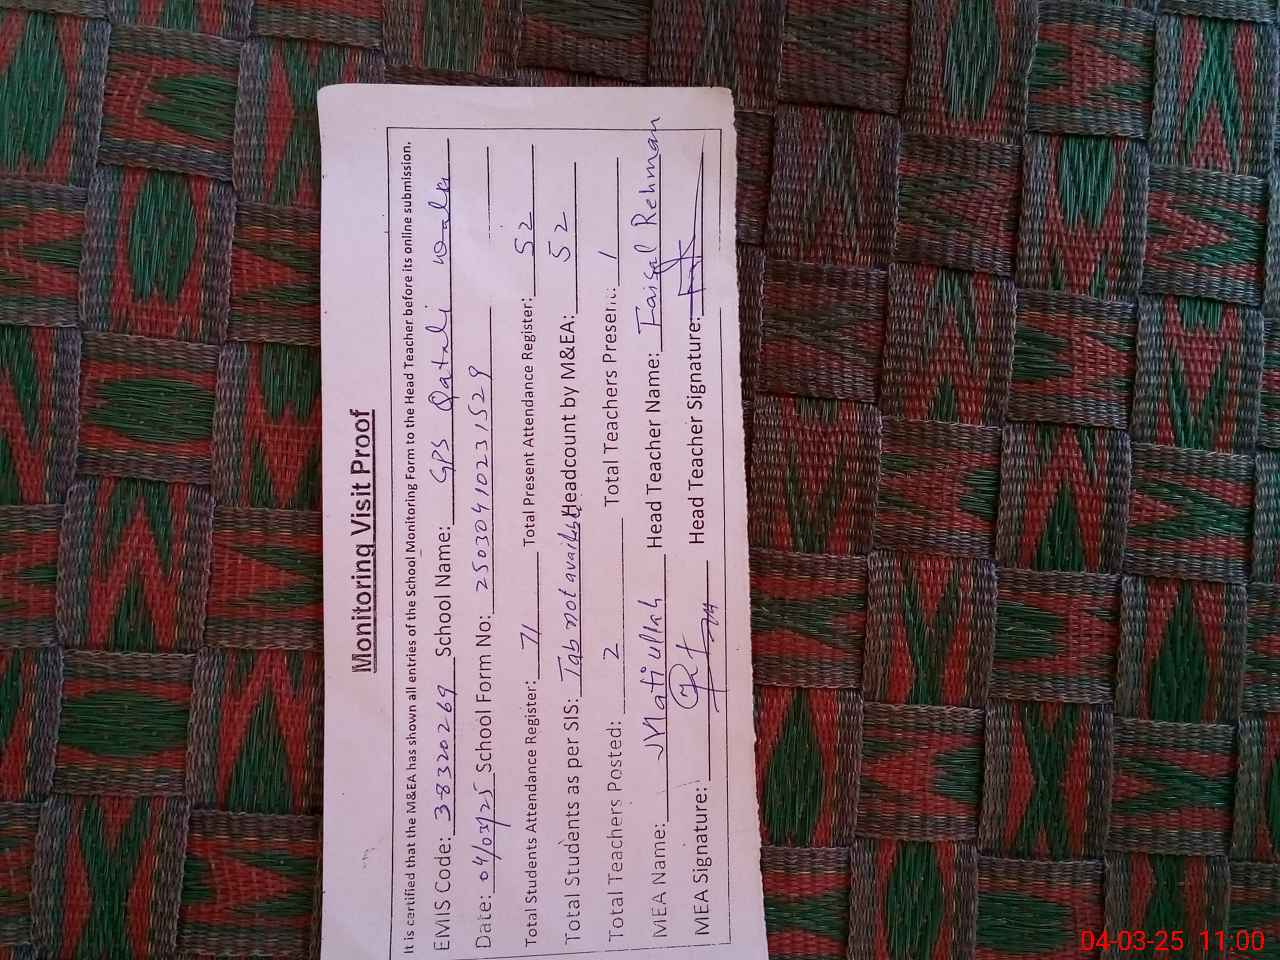 Monitoring Visit Proof
It is certified that the M&EA has shown all entries of the School Monitoring Form to the Head Teacher before its online submission.
EMIS Code: 38320269 School Name: GPS Qatali wala
Date: 04/03/25 School Form No: 25030410231529
Total Students Attendance Register: 71 Total Present Attendance Register: 52
Total Students as per SIS: Tab not available Headcount by M&EA: 52
Total Teachers Posted: 2 Total Teachers Present: 1
MEA Name: Matiullah Head Teacher Name: Faisal Rehman
MEA Signature: Head Teacher Signature:
04-03-25 11:00